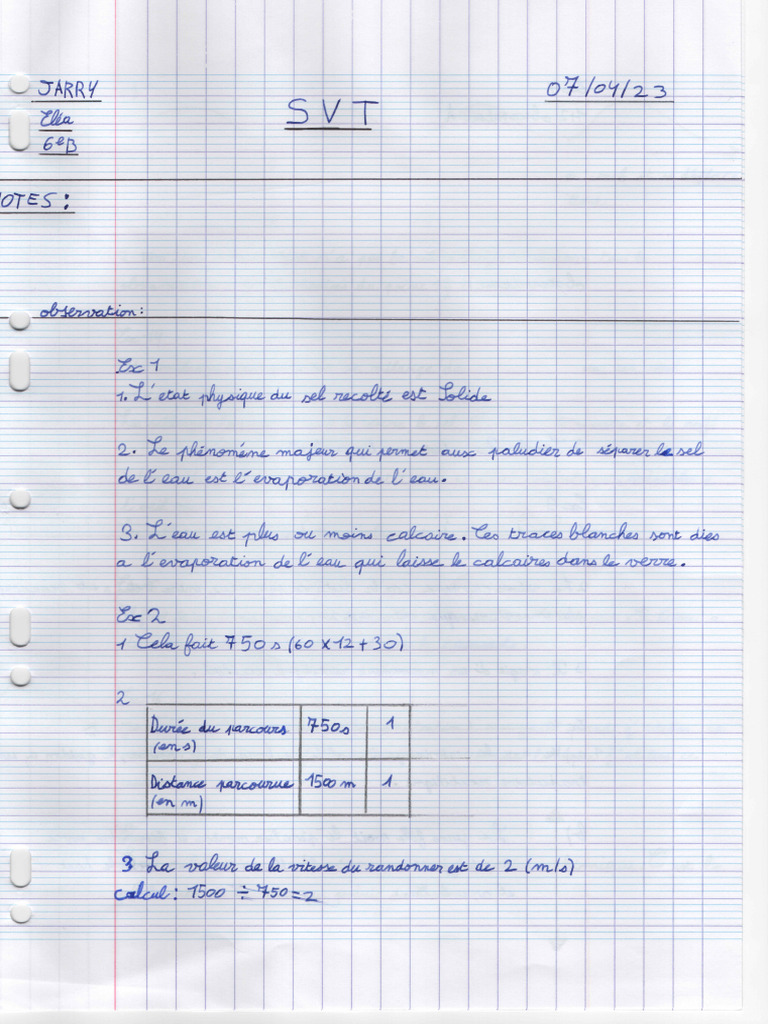 JARRY
07/04/23
SVT
Eléa
6eB
OTES:
observation:
Ex 1
1. L'etat physique du sel recolté est Solide
2. Le phénoméne majeur qui permet aux paludier de séparer le sel
de l'eau est l'evaporation de l'eau.
3. L'eau est plus ou moins calcaire. Ces traces blanches sont dies
a l'evaporation de l'eau qui laisse le calcaires dans le verre.
Ex 2
1 Cela fait 750 s (60 x 12 + 30)
2
Durée du parcours 750s 1
(en s)
Distance parcourue 1500 m 1
(en m)
3 La valeur de la vitesse du randonner est de 2 (m/s)
calcul: 1500 ÷ 750 = 2